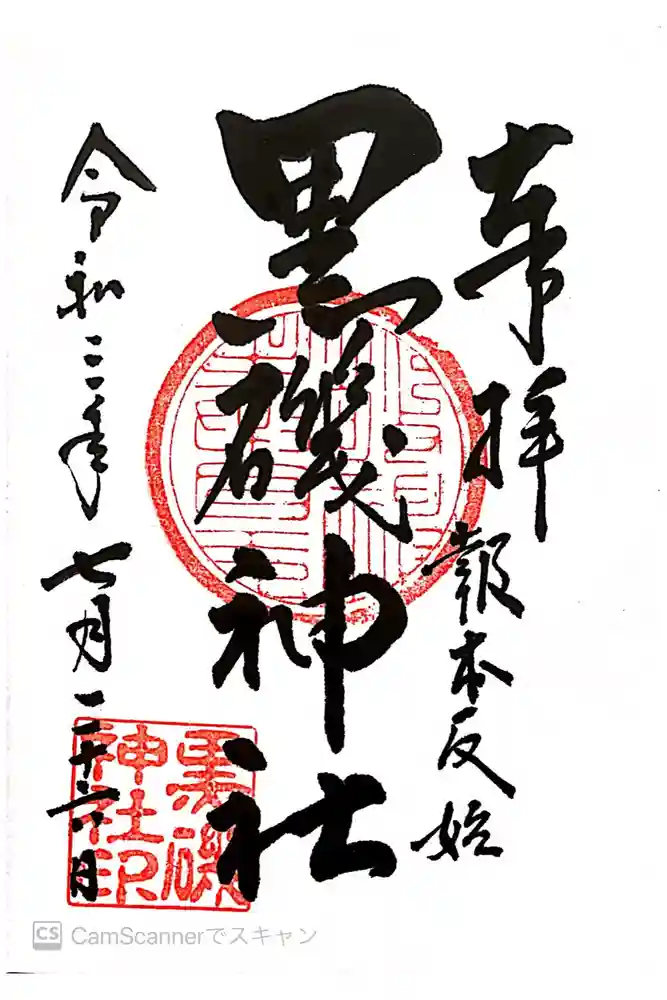 奉拝
報本反始
黒磯神社
令和三年七月二十六日
黒磯
神社印
CS CamScannerでスキャン